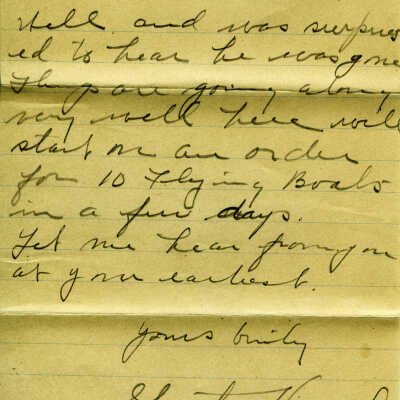 well and was surpris
ed to hear he was gone
things are going along
very well here will
start on an order
for 10 Flying Boats
in a few days.
Let me hear from you
at your earliest.
Yours truly